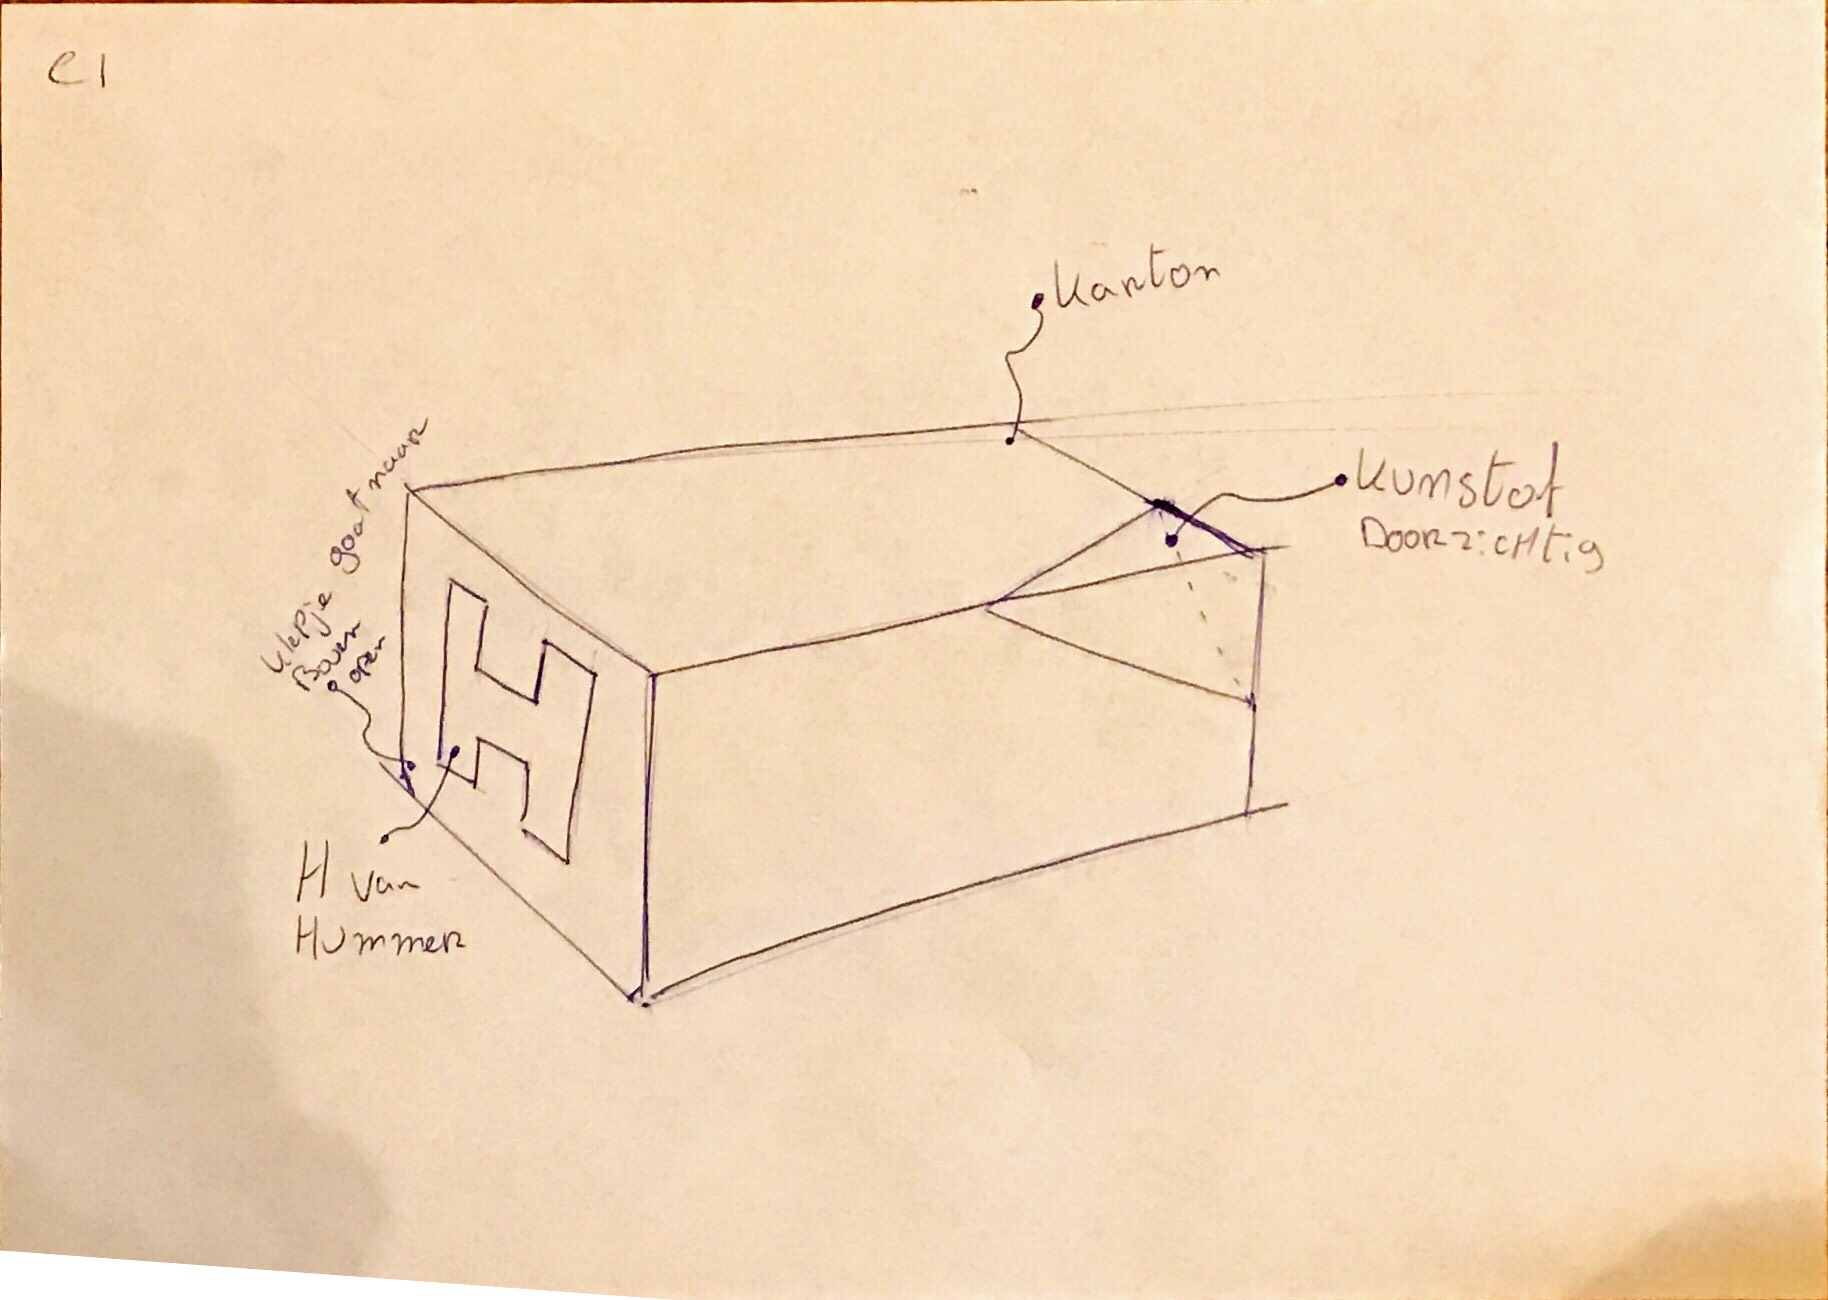 C1
Karton
Kunstof
Doorzichtig
Klepje gaat naar
Boven
open
H
H van
Hummer